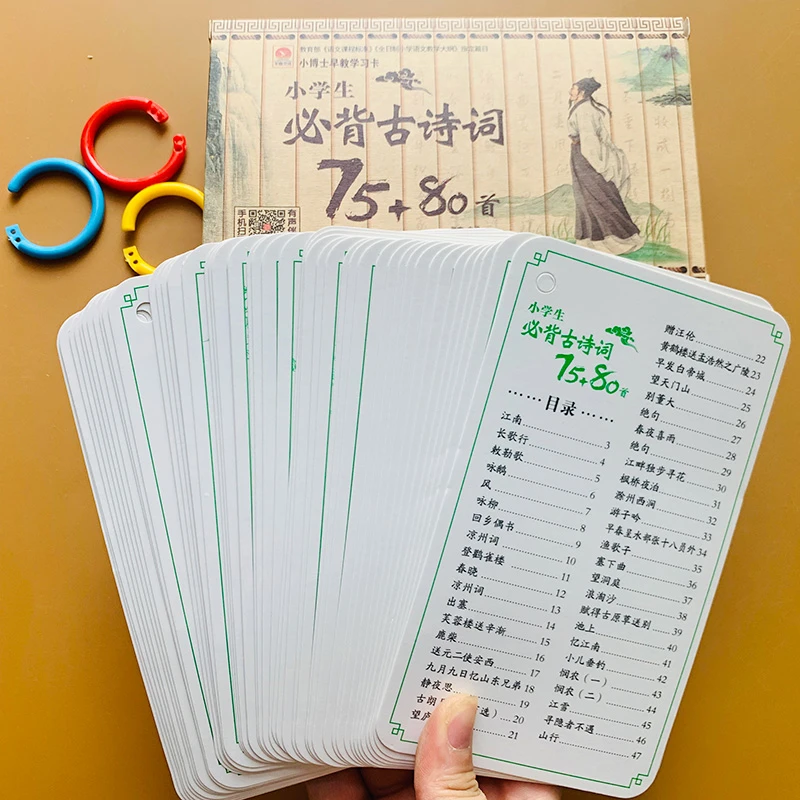 小博士早教学习卡
小学生
必背古诗词
75+80首
小学生
必背古诗词
75+80首
……目录……
江南 3
长歌行 4
敕勒歌 5
咏鹅 6
风 7
咏柳 8
回乡偶书 9
凉州词 10
登鹳雀楼 11
春晓 12
凉州词 13
出塞 14
芙蓉楼送辛渐 15
鹿柴 16
送元二使安西 17
九月九日忆山东兄弟 18
静夜思 19
古朗 选） 20
望庐 21
赠汪伦 22
黄鹤楼送孟浩然之广陵 23
早发白帝城 24
望天门山 25
别董大 26
绝句 27
春夜喜雨 28
绝句 29
江畔独步寻花 30
枫桥夜泊 31
滁州西涧 32
游子吟 33
早春呈水部张十八员外 34
渔歌子 35
塞下曲 36
望洞庭 37
浪淘沙 38
赋得古原草送别 39
池上 40
忆江南 41
小儿垂钓 42
悯农（一） 43
悯农（二） 44
江雪 45
寻隐者不遇 46
山行 47